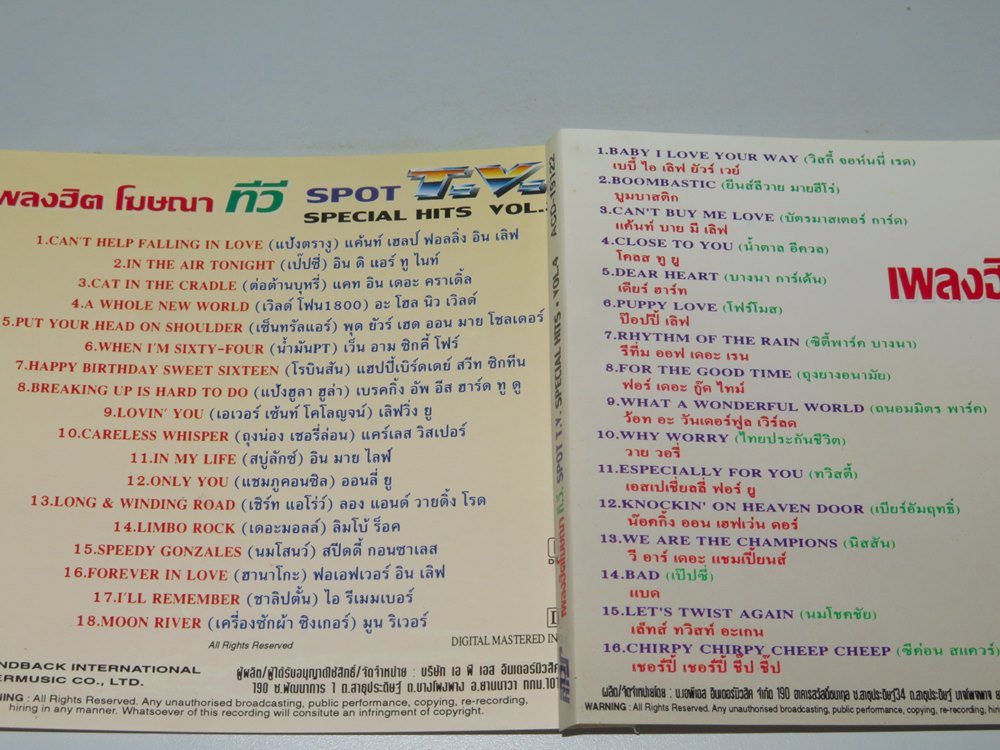 พลงฮิต โฆษณา ทีวี SPOT T.V.
SPECIAL HITS VOL.
1.CAN'T HELP FALLING IN LOVE (แป้งตรางู) แค้นท์ เฮลป ฟอลลิ่ง อิน เลิฟ
2.IN THE AIR TONIGHT (เป๊ปซี่) อิน ดิ แอร์ ทู ไนท์
3.CAT IN THE CRADLE (ต่อต้านบุหรี่) แคท อิน เดอะ คราเดิ้ล
4.A WHOLE NEW WORLD (เวิลด์ โฟน1800) อะ โฮล นิว เวิลด์
5.PUT YOUR HEAD ON SHOULDER (เซ็นทรัลแอร์) พุด ยัวร์ เฮด ออน มาย โชลเดอร์
6.WHEN I'M SIXTY-FOUR (น้ำมันPT) เว็น อาม ซิกตี้ โฟร์
7.HAPPY BIRTHDAY SWEET SIXTEEN (โรบินสัน) แฮปปี้เบิร์ดเดย์ สวีท ซิกทีน
8.BREAKING UP IS HARD TO DO (แป้งฮูลา ฮูล่า) เบรคกิ้ง อัพ อีส ฮาร์ด ทู ดู
9.LOVIN' YOU (เอเวอร์ เซ้นท์ โคโลญจน์) เลิฟวิ่ง ยู
10.CARELESS WHISPER (ถุงน่อง เชอรี่ล่อน) แคร์เลส วิสเปอร์
11.IN MY LIFE (สบู่ลักซ์) อิน มาย ไลฟ์
12.ONLY YOU (แชมภูคอนซิล) ออนลี่ ยู
13.LONG & WINDING ROAD (เชิร์ท แอโร่ว์) ลอง แอนด์ วายดิ้ง โรด
14.LIMBO ROCK (เดอะมอลล์) ลิมโบ้ ร็อค
15.SPEEDY GONZALES (นมโสนว์) สปีดดี้ กอนซาเลส
16.FOREVER IN LOVE (ฮานาโกะ) ฟอเอฟเวอร์ อิน เลิฟ
17.I'LL REMEMBER (ซาลิปตั้น) ไอ รีเมมเบอร์
18.MOON RIVER (เครื่องซักผ้า ซิงเกอร์) มูน ริเวอร์
All Rights Reserved
DIGITAL MASTERED IN
NDBACK INTERNATIONAL
ERMUSIC CO., LTD.
ผู้ผลิต/ผู้ได้รับอนุญาตใช้สิทธิ์/จัดจำหน่าย : บริษัท เอ พี เอส อินเตอร์มิวสิค
190 ซ.พัฒนาการ 1 ถ.สาธุประดิษฐ์ ต.บางโพงพาง อ.ยานนาวา กทม.101
NING : All Rights Reserved. Any unauthorised broadcasting, public performance, copying, re-recording,
hiring in any manner. Whatsoever of this recording will consitute an infringment of copyright.
เพลงฮิตโฆษณา ทีวี. SPOT T.V. SPECIAL HITS • VOL.4 ACD-19122
1.BABY I LOVE YOUR WAY (วิสกี้ จอห์นนี่ เรด)
เบบี้ ไอ เลิฟ ยัวร์ เวย์
2.BOOMBASTIC (ยีนส์ลีวาย มายฮีโร่)
บูมบาสติก
3.CAN'T BUY ME LOVE (บัตรมาสเตอร์ การ์ด)
แค้นท์ บาย มี เลิฟ
4.CLOSE TO YOU (น้ำตาล อีควล)
โคลส ทู ยู
5.DEAR HEART (บางนา การ์เด้น)
เดียร์ ฮาร์ท
6.PUPPY LOVE (โฟร์โมส)
ป๊อปปี้ เลิฟ
7.RHYTHM OF THE RAIN (ซิตี้พาร์ค บางนา)
รีทึ่ม ออฟ เดอะ เรน
8.FOR THE GOOD TIME (ถุงยางอนามัย)
ฟอร์ เดอะ กู๊ด ไทม์
9.WHAT A WONDERFUL WORLD (ถนอมมิตร พาร์ค)
ว้อท อะ วันเดอร์ฟูล เวิร์ลด
10.WHY WORRY (ไทยประกันชีวิต)
วาย วอรี่
11.ESPECIALLY FOR YOU (ทวิสตี้)
เอสเปเชี่ยลลี่ ฟอร์ ยู
12.KNOCKIN' ON HEAVEN DOOR (เบียร์อัมฤทธิ์)
น๊อคกิ้ง ออน เฮฟเว่น ดอร์
13.WE ARE THE CHAMPIONS (นิสสัน)
วี อาร์ เดอะ แชมเปี้ยนส์
14.BAD (เป๊ปซี่)
แบด
15.LET'S TWIST AGAIN (นมโชคชัย)
เล็ทส์ ทวิสท์ อะเกน
16.CHIRPY CHIRPY CHEEP CHEEP (ซีค่อน สแควร์)
เชอร์ปี้ เชอร์ปี้ ชีป ชี๊ป
เพลงฮิ
ผลิต/จัดจำหน่ายโดย : บ.เอพีเอส อินเตอร์มิวสิค จำกัด 190
WARNING : All Rights Reserved. Any unauthorised broadcasting, public performance, copying, re-recording, hiri